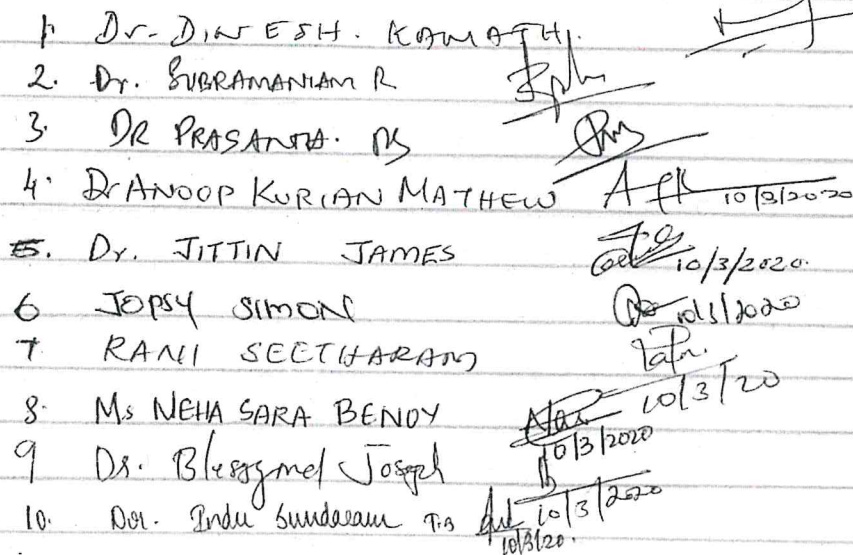 1. Dr. DINESH. KAMATH.
2. Dr. SUBRAMANIAM R
3. DR PRASANTH. PS
4. Dr ANOOP KURIAN MATHEW 10/3/2020
5. Dr. JITTIN JAMES 10/3/2020.
6 JOPSY SIMON 10/3/2020
7 RANI SEETHARAM 10/3/20
8. Ms NEHA SARA BENOY 10/3/2020
9 Dr. Joseph 10/3/2020
10. Dr. Indu Sundaram T.B 10/3/20.